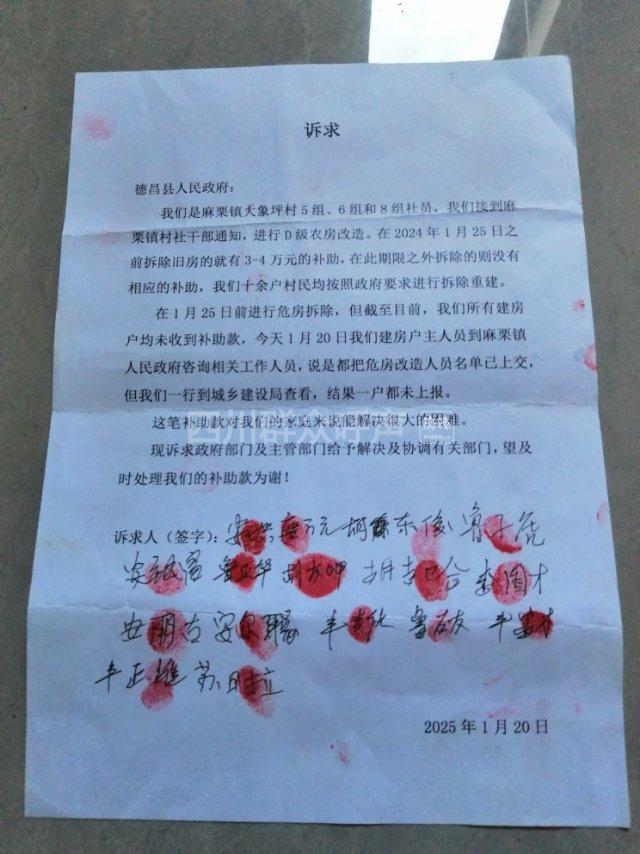 诉求
德昌县人民政府：
我们是麻栗镇大象坪村5组、6组和8组社员，我们接到麻
栗镇村社干部通知，进行D级农房改造。在2024年1月25日之
前拆除旧房的就有3-4万元的补助，在此期限之外拆除的则没有
相应的补助，我们十余户村民均按照政府要求进行拆除重建。
在1月25日前进行危房拆除，但截至目前，我们所有建房
户均未收到补助款，今天1月20日我们建房户主人员到麻栗镇
人民政府咨询相关工作人员，说是都把危房改造人员名单已上交，
但我们一行到城乡建设局查看，结果一户都未上报。
这笔补助款对我们的家庭来说能解决很大的困难。
现诉求政府部门及主管部门给予解决及协调有关部门，望及
时处理我们的补助款为谢！
诉求人（签字）：
丰正雄 苏日拉
2025年1月20日
四川群众呼声